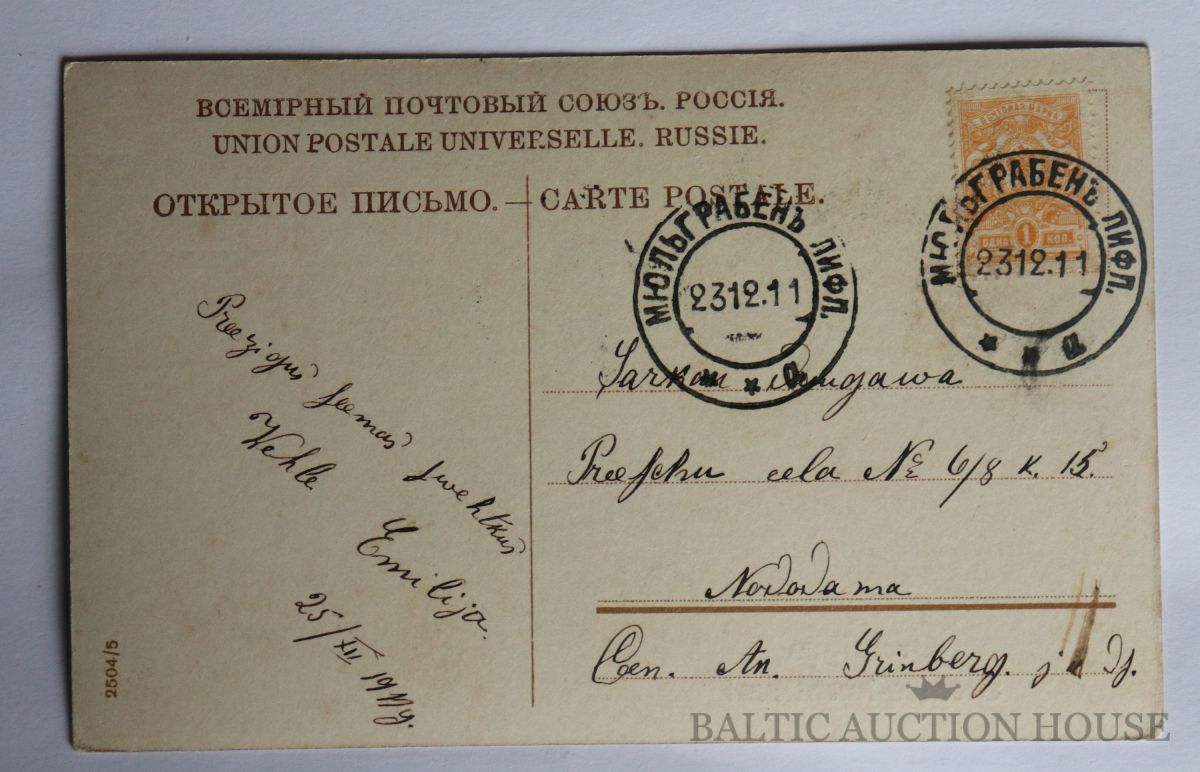 ВСЕМІРНЫЙ ПОЧТОВЫЙ СОЮЗЪ. РОССІЯ.
UNION POSTALE UNIVERSELLE. RUSSIE.
ОТКРЫТОЕ ПИСЬМО. — CARTE POSTALE.
ПОЧТОВАЯ МАРКА
ОДНА 1 КОП.
МЮЛЬГРАБЕНЪ ЛИФЛ.
2312.11
МЮЛЬГРАБЕНЪ ЛИФЛ.
2312.11
Preezigus
seemas
swehtkus
Wehle
Emilija.
25/XII 1911g.
Sarkan Daugawa
Preeschu eela № 6/8 k. 15.
Nododama
Cen. An. Grinberg. j dz.
2504/5
BALTIC AUCTION HOUSE